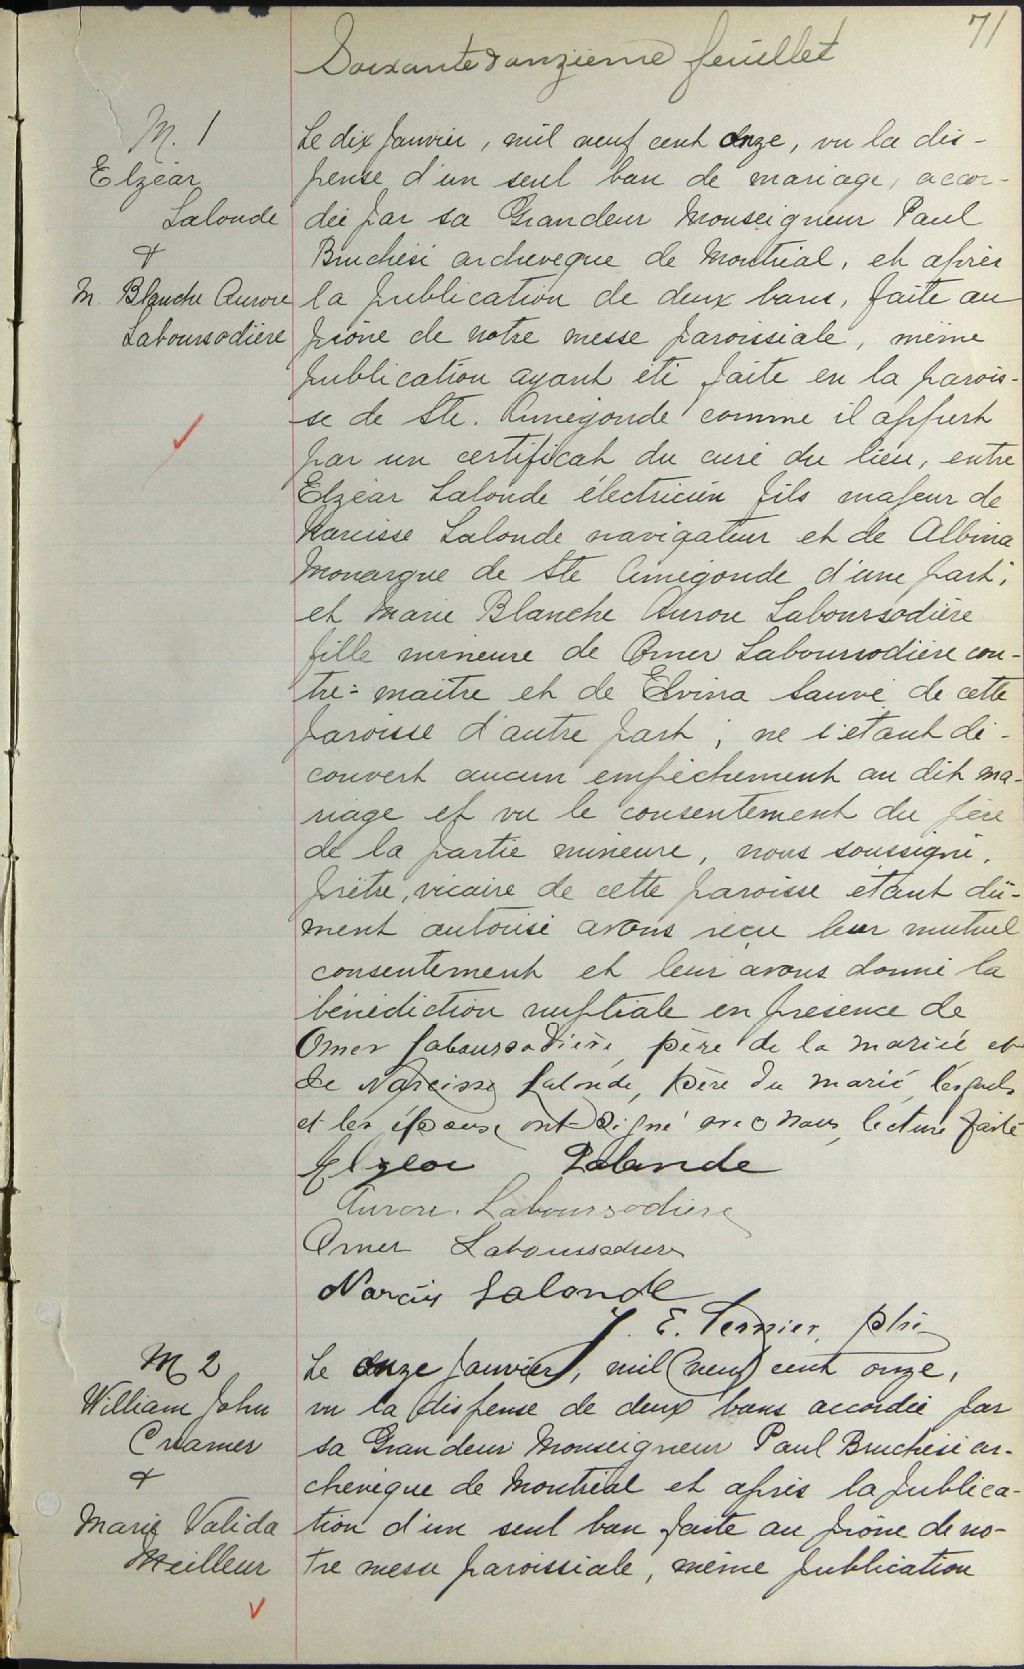 71
Soixante & onzième feuillet
M. 1
Elzéar
Lalonde
&
M. Blanche Aurore
Laboursodière
Le dix Janvier, mil neuf cent onze, vu la dis-
pense d'un seul ban de mariage, accor-
dée par sa Grandeur Monseigneur Paul
Bruchési archevêque de Montréal, et après
la publication de deux bans, faite au
prône de notre messe paroissiale, même
publication ayant été faite en la parois-
se de Ste. Cunégonde comme il appert
par un certificat du curé du lieu, entre
Elzéar Lalonde électricien fils majeur de
Narcisse Lalonde navigateur et de Albina
Monarque de Ste Cunégonde d'une part;
et Marie Blanche Aurore Laboursodière
fille mineure de Omer Laboursodière con-
tre-maître et de Elvina Sauvé de cette
paroisse d'autre part; ne s'étant dé-
couvert aucun empêchement au dit ma-
riage et vu le consentement du père
de la partie mineure, nous soussigné,
prêtre, vicaire de cette paroisse étant dû-
ment autorisé avons reçu leur mutuel
consentement et leur avons donné la
bénédiction nuptiale en présence de
Omer Laboursodière, père de la mariée et
de Narcisse Lalonde, père du marié, lesquels
et les époux ont signé avec nous, lecture faite
Elzear Lalonde
Aurore. Laboursodiere
Omer Laboussediere
Narcis Lalonde
J. E. Vernier, ptr
M 2
William John
Cramer
&
Marie Valida
Meilleur
Le onze Janvier, mil neuf cent onze,
vu la dispense de deux bans accordée par
sa Grandeur Monseigneur Paul Bruchési ar-
chevêque de Montréal et après la publica-
tion d'un seul ban faite au prône de no-
tre messe paroissiale, même publication